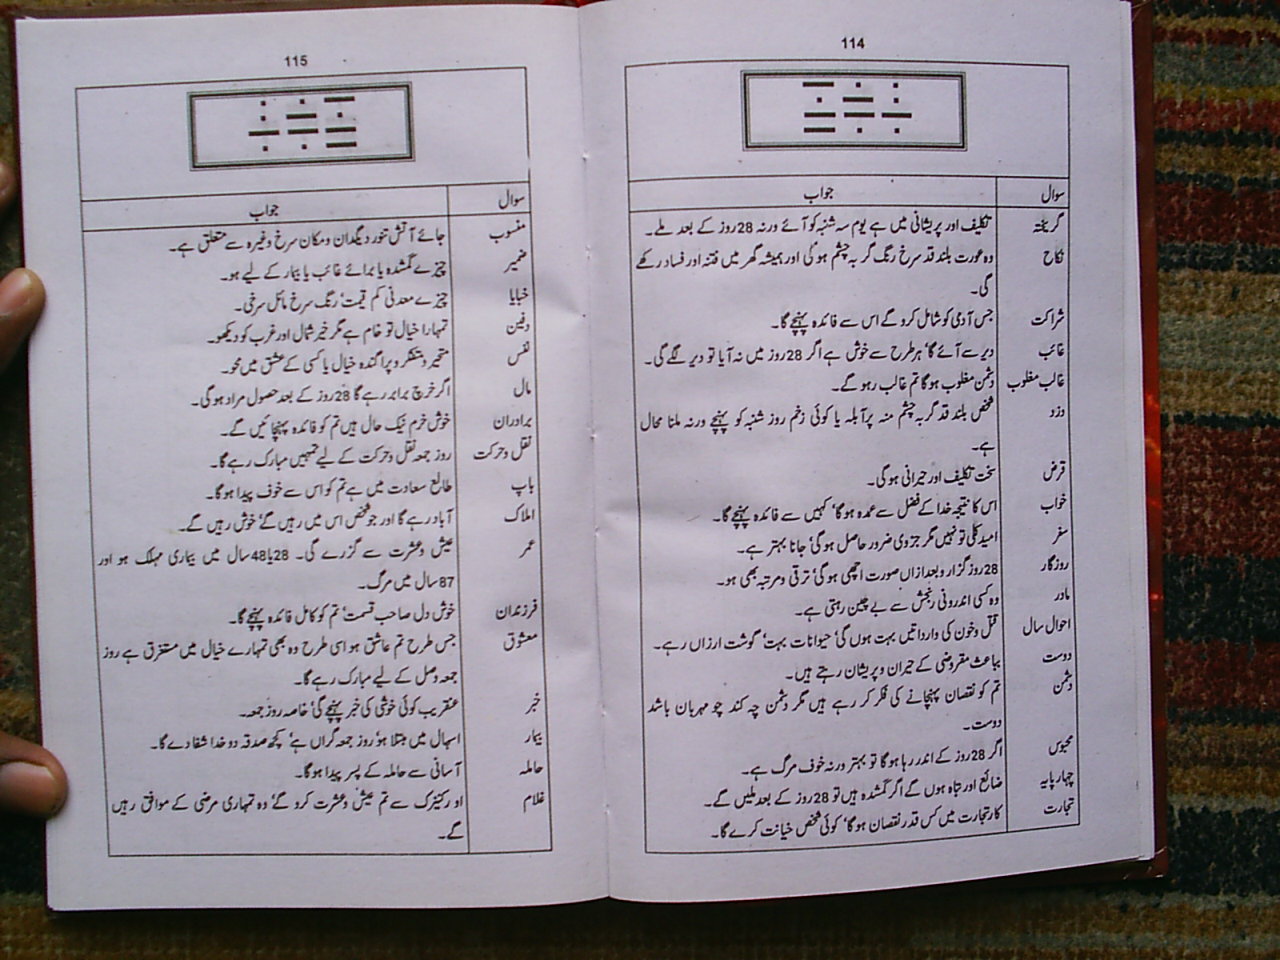 114
سوال جواب
گریختہ تکلیف اور پریشانی میں ہے یوم سہ شنبہ کو آئے ورنہ 28 روز کے بعد ملے۔
نکاح وہ عورت بلند قد سرخ رنگ گربہ چشم ہوگی اور ہمیشہ گھر میں فتنہ اور فساد رکھے
گی۔
شراکت جس آدمی کو شامل کرو گے اس سے فائدہ پہنچے گا۔
غائب دیر سے آئے گا' ہر طرح سے خوش ہے اگر 28 روز میں نہ آیا تو دیر لگے گی۔
غالب مغلوب دشمن مغلوب ہوگا تم غالب رہو گے۔
دزد شخص بلند قد گربہ چشم منہ پر آبلہ یا کوئی زخم روز شنبہ کو پہنچے ورنہ ملنا محال
ہے۔
قرض سخت تکلیف اور حیرانی ہوگی۔
خواب اس کا نتیجہ خدا کے فضل سے عمدہ ہوگا' کہیں سے فائدہ پہنچے گا۔
سفر امید کلی تو نہیں مگر جزوی ضرور حاصل ہوگی' جانا بہتر ہے۔
روزگار 28 روز گزار و بعد ازاں صورت اچھی ہوگی' ترقی و مرتبہ بھی ہو۔
مادر وہ کسی اندرونی رنجش سے بے چین رہتی ہے۔
احوال سال قتل و خون کی وارداتیں بہت ہوں گی' حیوانات بہت' گوشت ارزاں رہے۔
دوست بباعث مقروضی کے حیران و پریشان رہتے ہیں۔
دشمن تم کو نقصان پہنچانے کی فکر کر رہے ہیں مگر دشمن چہ کند چو مہربان باشد
دوست۔
محبوس اگر 28 روز کے اندر رہا ہوگا تو بہتر ورنہ خوف مرگ ہے۔
چہار پایہ ضائع اور تباہ ہوں گے اگر گمشدہ ہیں تو 28 روز کے بعد ملیں گے۔
تجارت کار تجارت میں کس قدر نقصان ہوگا' کوئی شخص خیانت کرے گا۔
115
سوال جواب
منسوب جائے آتش تنور دیگدان و مکان سرخ وغیرہ سے متعلق ہے۔
ضمیر چیزے گمشدہ یا برائے غائب یا بیمار کے لیے ہو۔
خبایا چیزے معدنی کم قیمت' رنگ سرخ مائل سرخی۔
دفین تمہارا خیال تو خام ہے مگر خیر شمال اور غرب کو دیکھو۔
نفس متحیر و متفکر و پراگندہ خیال یا کسی کے عشق میں محو۔
مال اگر خرچ برابر رہے گا 28 روز کے بعد حصول مراد ہوگی۔
برادران خوش خرم نیک حال ہیں تم کو فائدہ پہنچائیں گے۔
نقل و حرکت روز جمعہ نقل و حرکت کے لیے تمہیں مبارک رہے گا۔
باپ طالع سعادت میں ہے تم کو اس سے خوف پیدا ہوگا۔
املاک آباد رہے گا اور جو شخص اس میں رہیں گے' خوش رہیں گے۔
عمر عیش و عشرت سے گزرے گی۔ 28 یا 48 سال میں بیماری مہلک ہو اور
87 سال میں مرگ۔
فرزندان خوش دل صاحب قسمت' تم کو کامل فائدہ پہنچے گا۔
معشوق جس طرح تم عاشق ہو اسی طرح وہ بھی تمہارے خیال میں مستغرق ہے روز
جمعہ وصل کے لیے مبارک رہے گا۔
خبر عنقریب کوئی خوشی کی خبر پہنچے گی' خاصہ روز جمعہ۔
بیمار اسہال میں مبتلا ہو' روز جمعہ گراں ہے' کچھ صدقہ دو خدا شفا دے گا۔
حاملہ آسانی سے حاملہ کے پسر پیدا ہوگا۔
غلام او رکنیزک سے تم عیش و عشرت کرو گے' وہ تمہاری مرضی کے موافق رہیں
گے۔